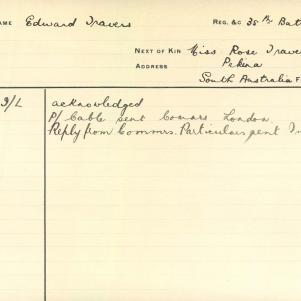 AME Edward Travers REG. &C 35th Bat
NEXT OF KIN Miss Rose Trave
ADDRESS Pekina
South Australia F
9/L acknowledged
P/ Cable sent Comårs London
Reply from Commrs. Particulars sent